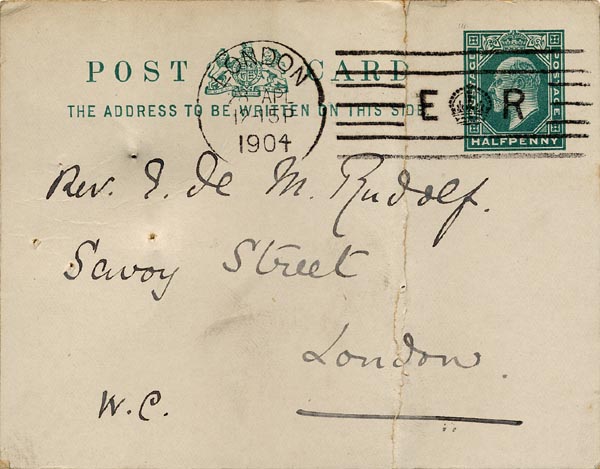 POST CARD
THE ADDRESS TO BE WRITTEN ON THIS SIDE
LONDON
AP
12 15P
1904
E R
POSTAGE
HALFPENNY
Rev. E. de M. Rudolf.
Savoy Street
London.
W.C.